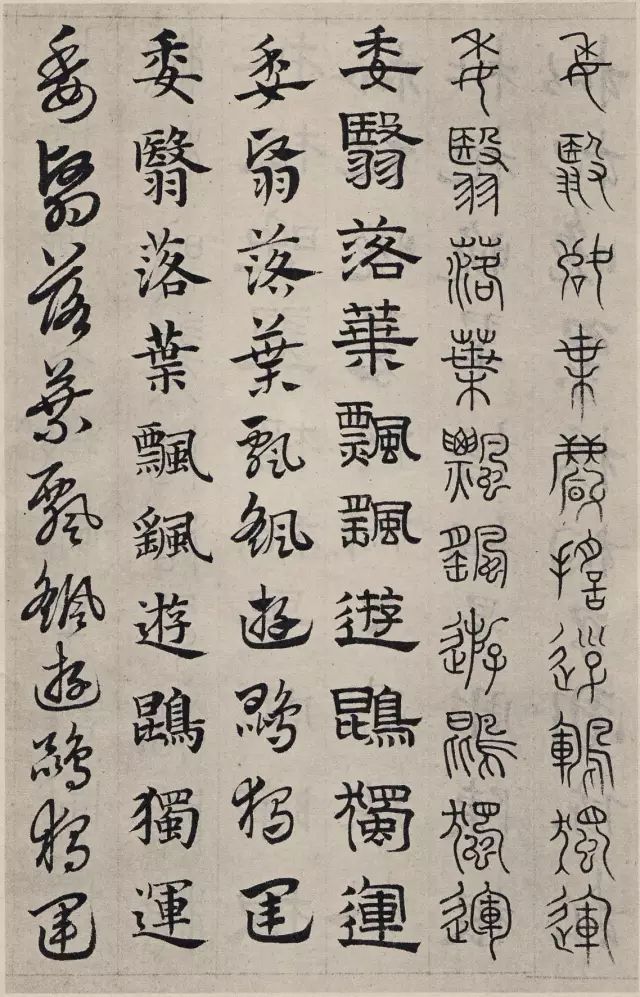 委翳落葉飄颻遊鵾獨運
委翳落葉飄颻遊鵾獨運
委翳落葉飄颻遊鵾獨運
委翳落葉飄颻遊鵾獨運
委翳落葉飄颻遊鵾獨運
委翳落葉飄颻遊鵾獨運